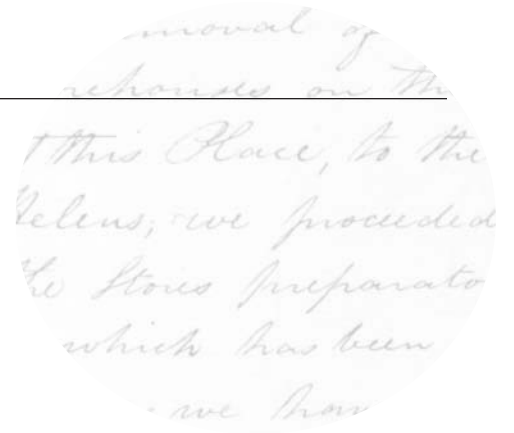 moval of
rehouses on th
t this Place, to the
Helens; we proceeded
he Stores preparato
which has been
we hav